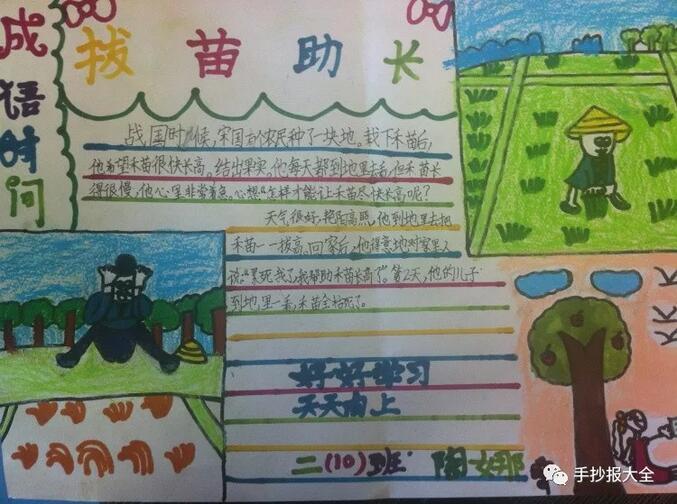 成语时间
拔苗助长
战国时候,宋国有个农民种了一块地。栽下禾苗后,
他希望禾苗很快长高。结出果实。他每天都到地里去看,但禾苗长
得很慢,他心里非常着急。心想“怎样才能让禾苗尽快长高呢?
天气很好,艳阳高照,他到地里去把
禾苗一一拔高。回家后,他得意地对家里人
说:“累死我了,我帮助禾苗长高了”。第2天,他的儿子
到地里一看,禾苗全枯死了。
好好学习
天天向上
二(10)班 陶娜
手抄报大全